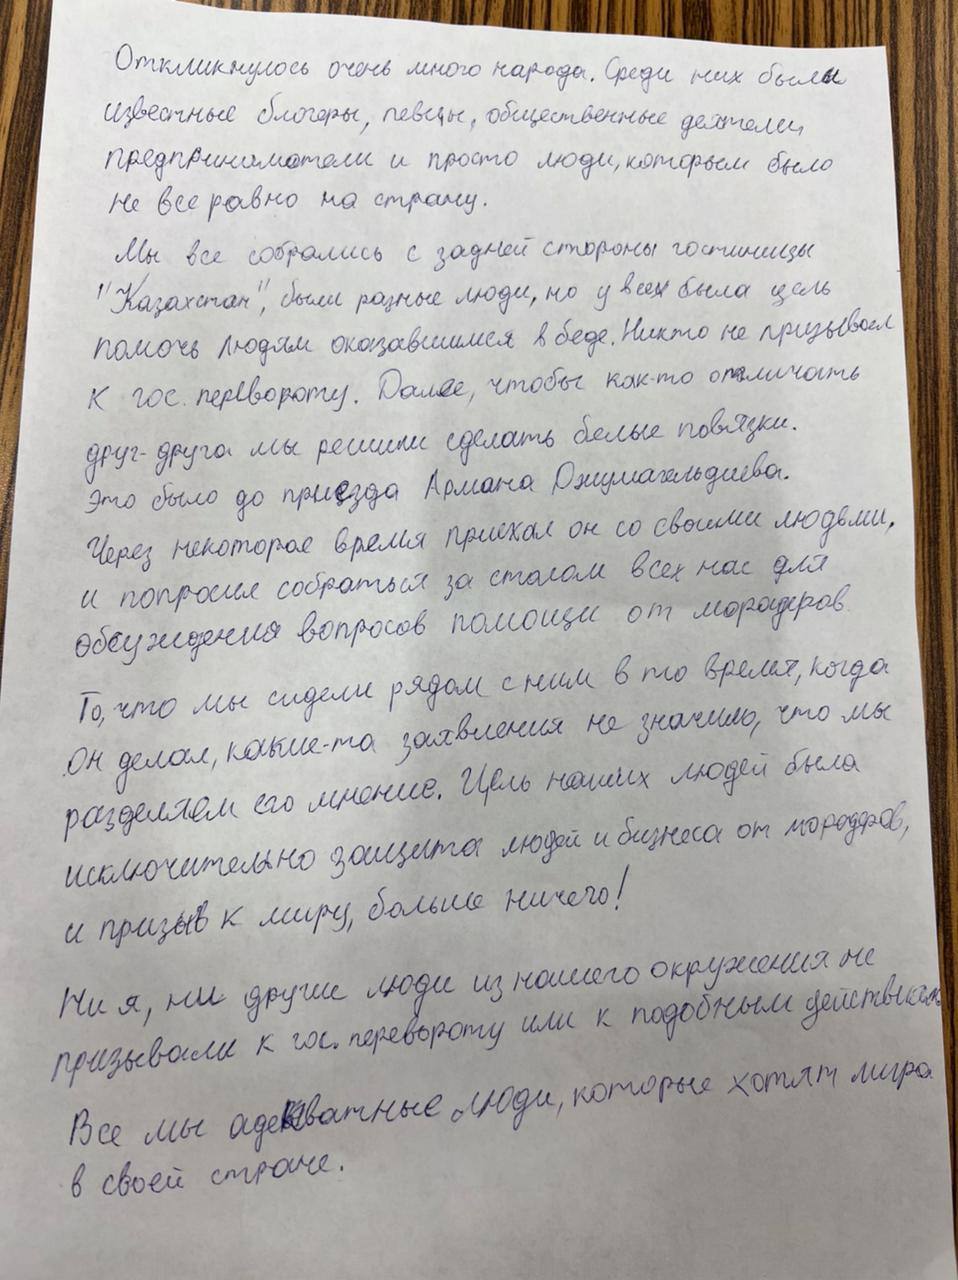 Откликнулось очень много народа. Среди них были
известные блогеры, певцы, общественные деятели,
предприниматели и просто люди, которым было
не все равно на страну.
Мы все собрались с задней стороны гостиницы
"Казахстан", были разные люди, но у всех была цель
помочь людям оказавшимся в беде. Никто не призывал
к гос. перевороту. Далее, чтобы как-то отличать
друг-друга мы решили сделать белые повязки.
Это было до приезда Армана Джумагельдиева.
Через некоторое время приехал он со своими людьми,
и попросил собраться за столом всех нас для
обсуждения вопросов помощи от мородеров.
То, что мы сидели рядом с ним в то время, когда
он делал, какие-та заявления не значило, что мы
разделяем его мнение. Цель наших людей была
исключительно защита людей и бизнеса от мородеров,
и призыв к миру, больше ничего!
Ни я, ни други люди из нашего окружения не
призывали к гос. перевороту или к подобным действиям
Все мы адекватные люди, которые хотят мира
в своей стране.